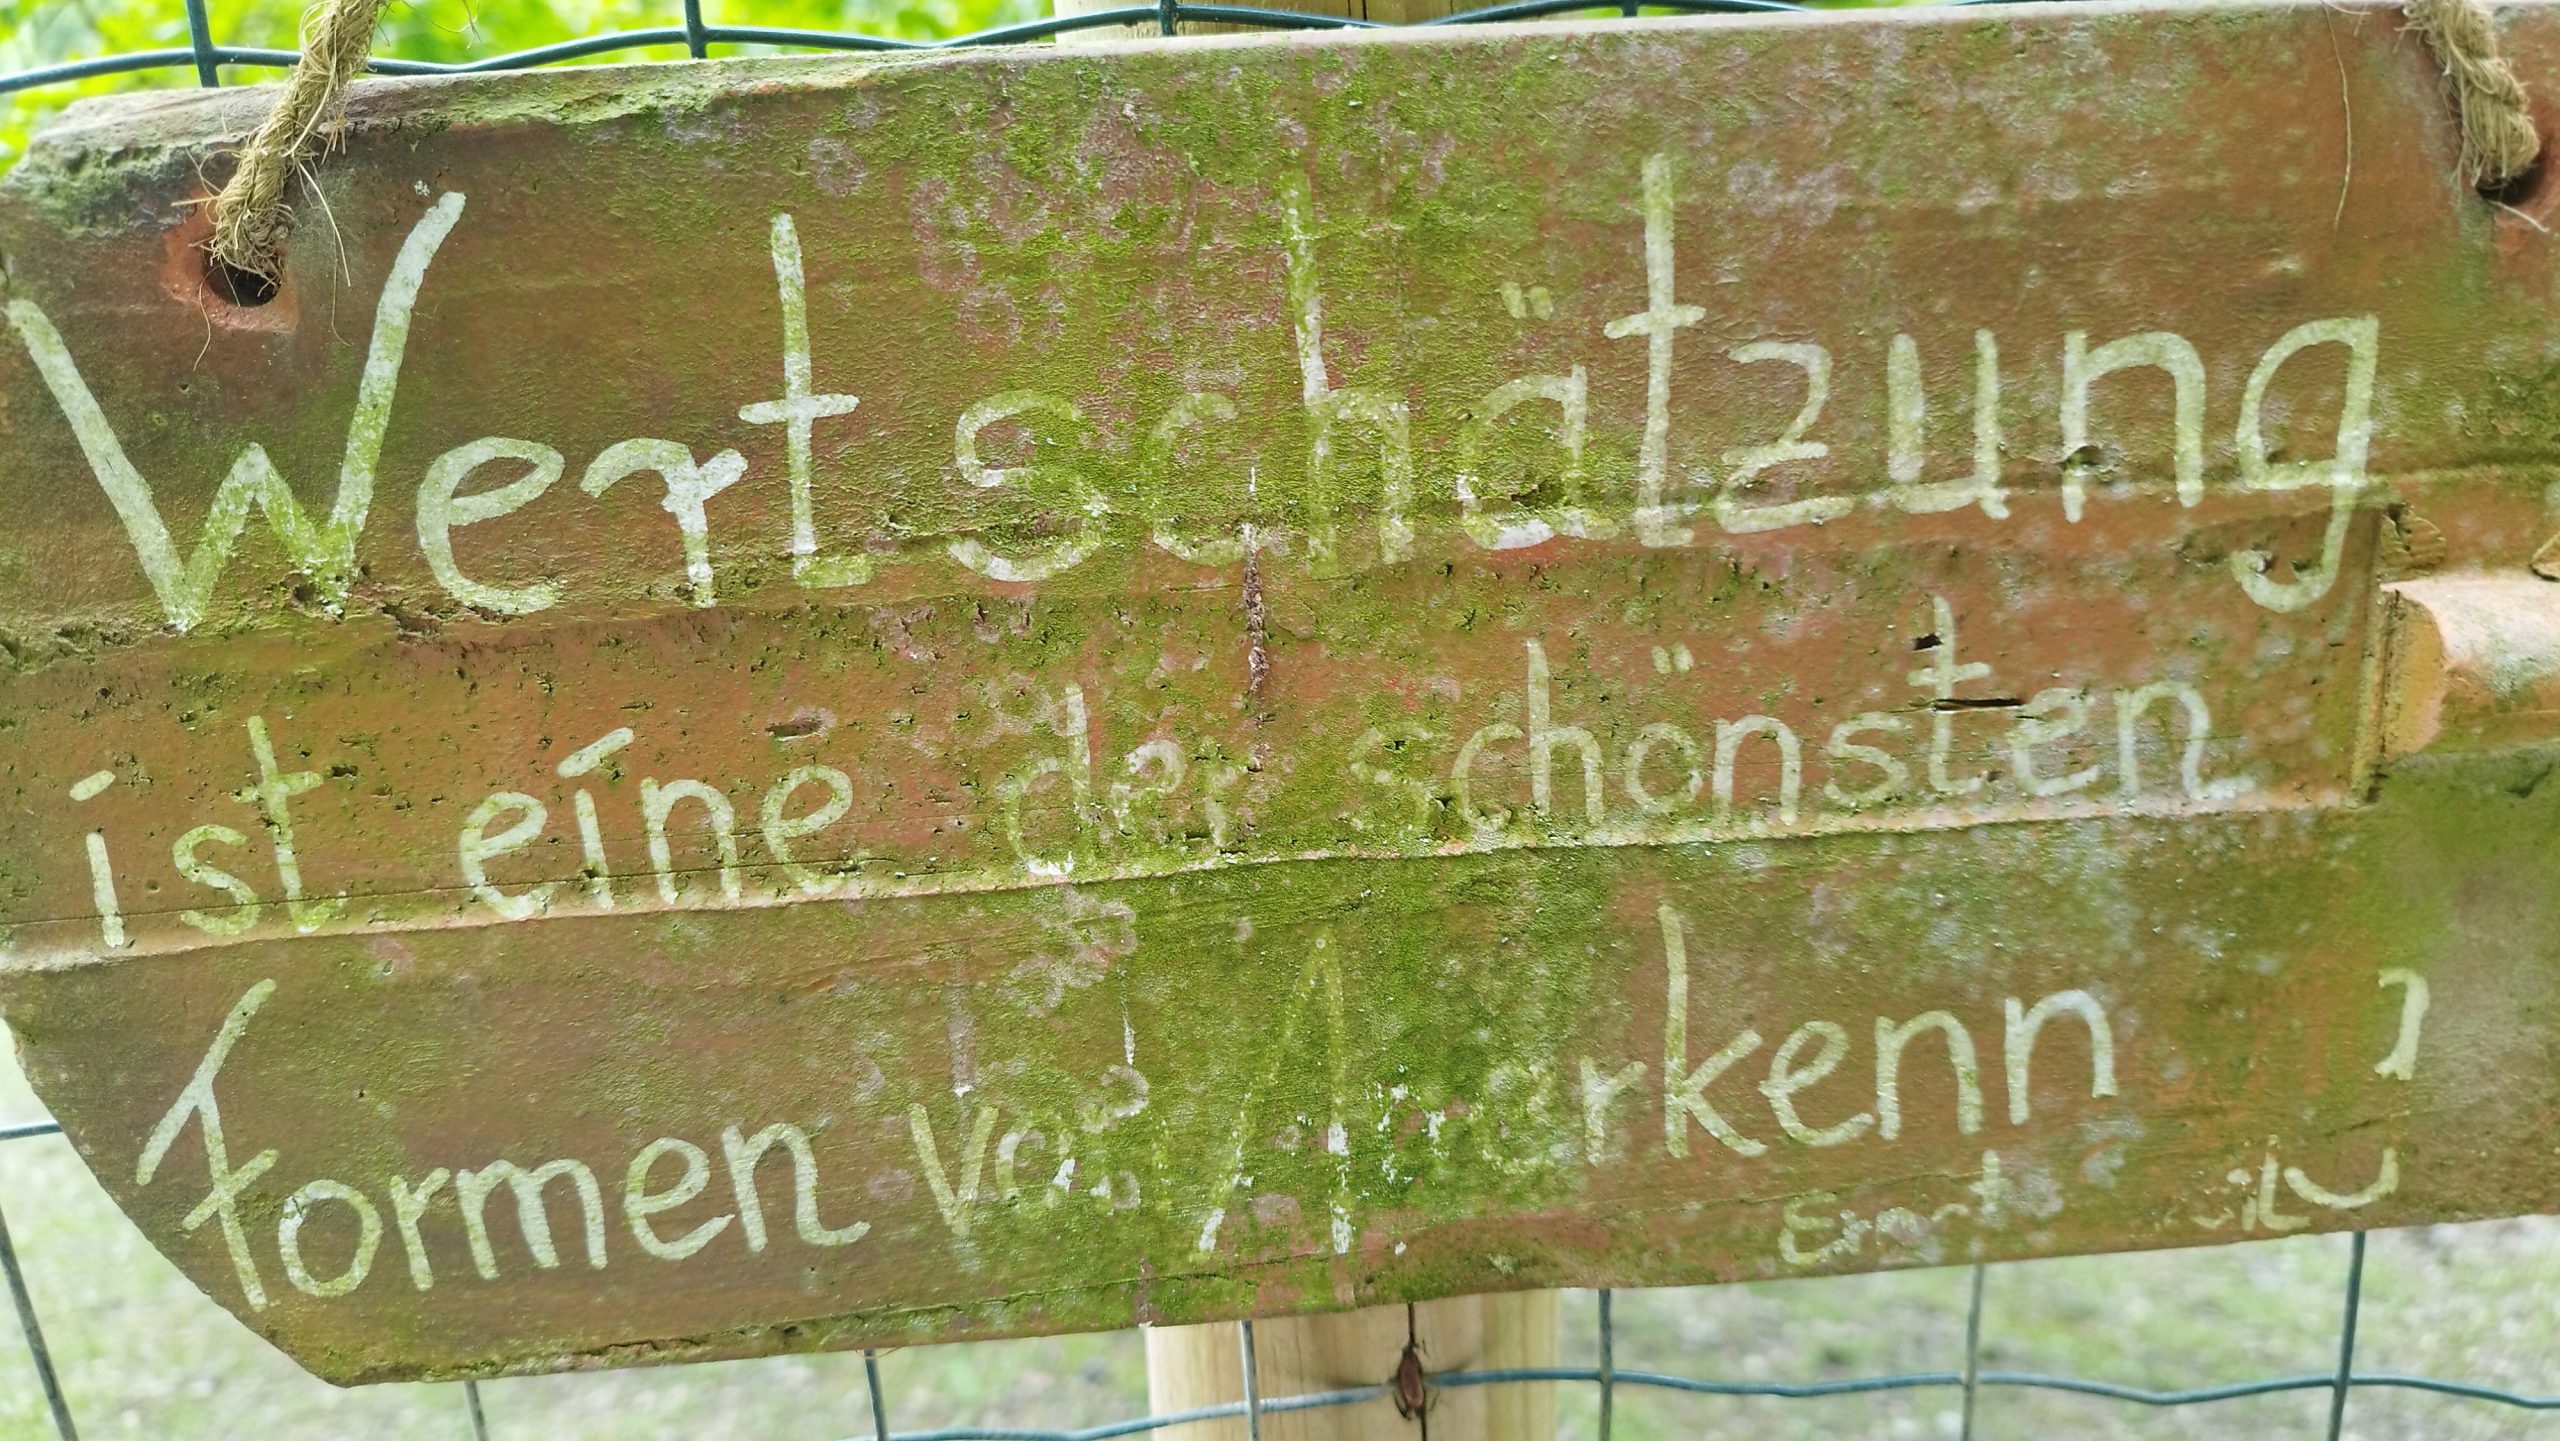 Wertschätzung
ist eine der schönsten
Formen von Anerkenn
Ernst